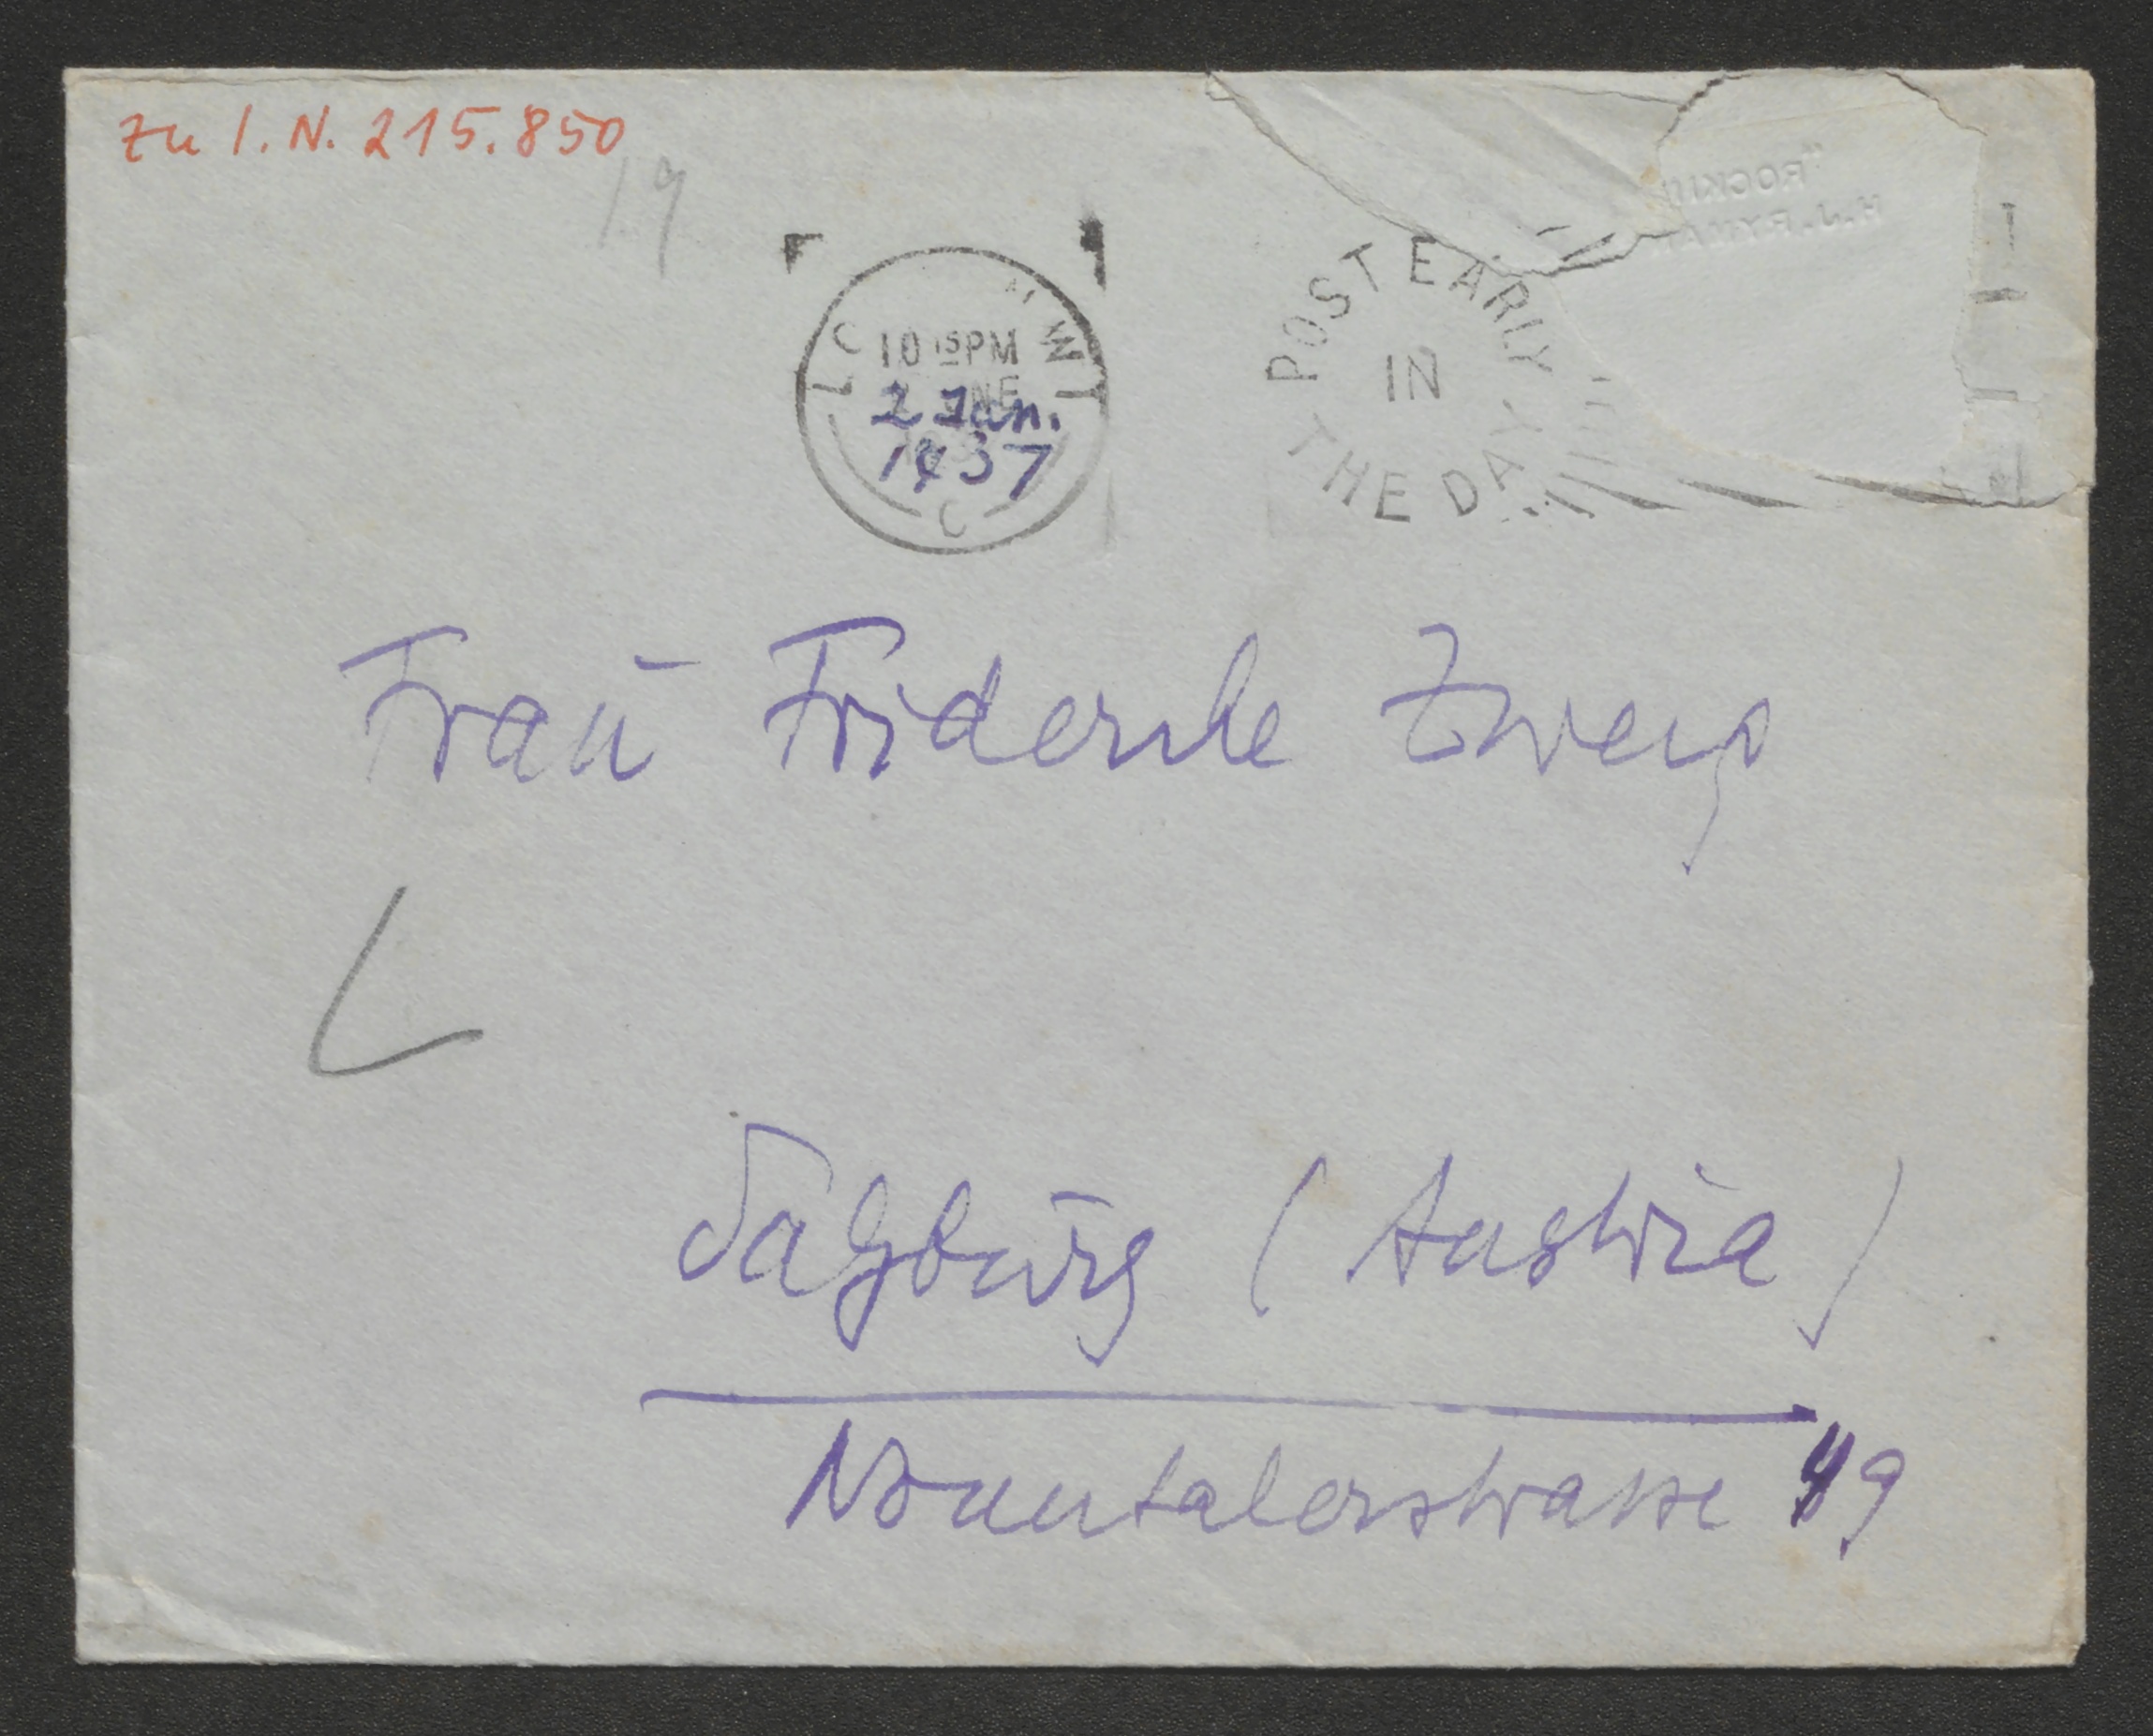 zu I.N. 215.850
19
10 15 PM
2 Jan.
1937
C
POST EARLY
IN
THE DAY
Frau Friderike Zweig
Salzburg (Austria)
Nonntalerstrasse 49